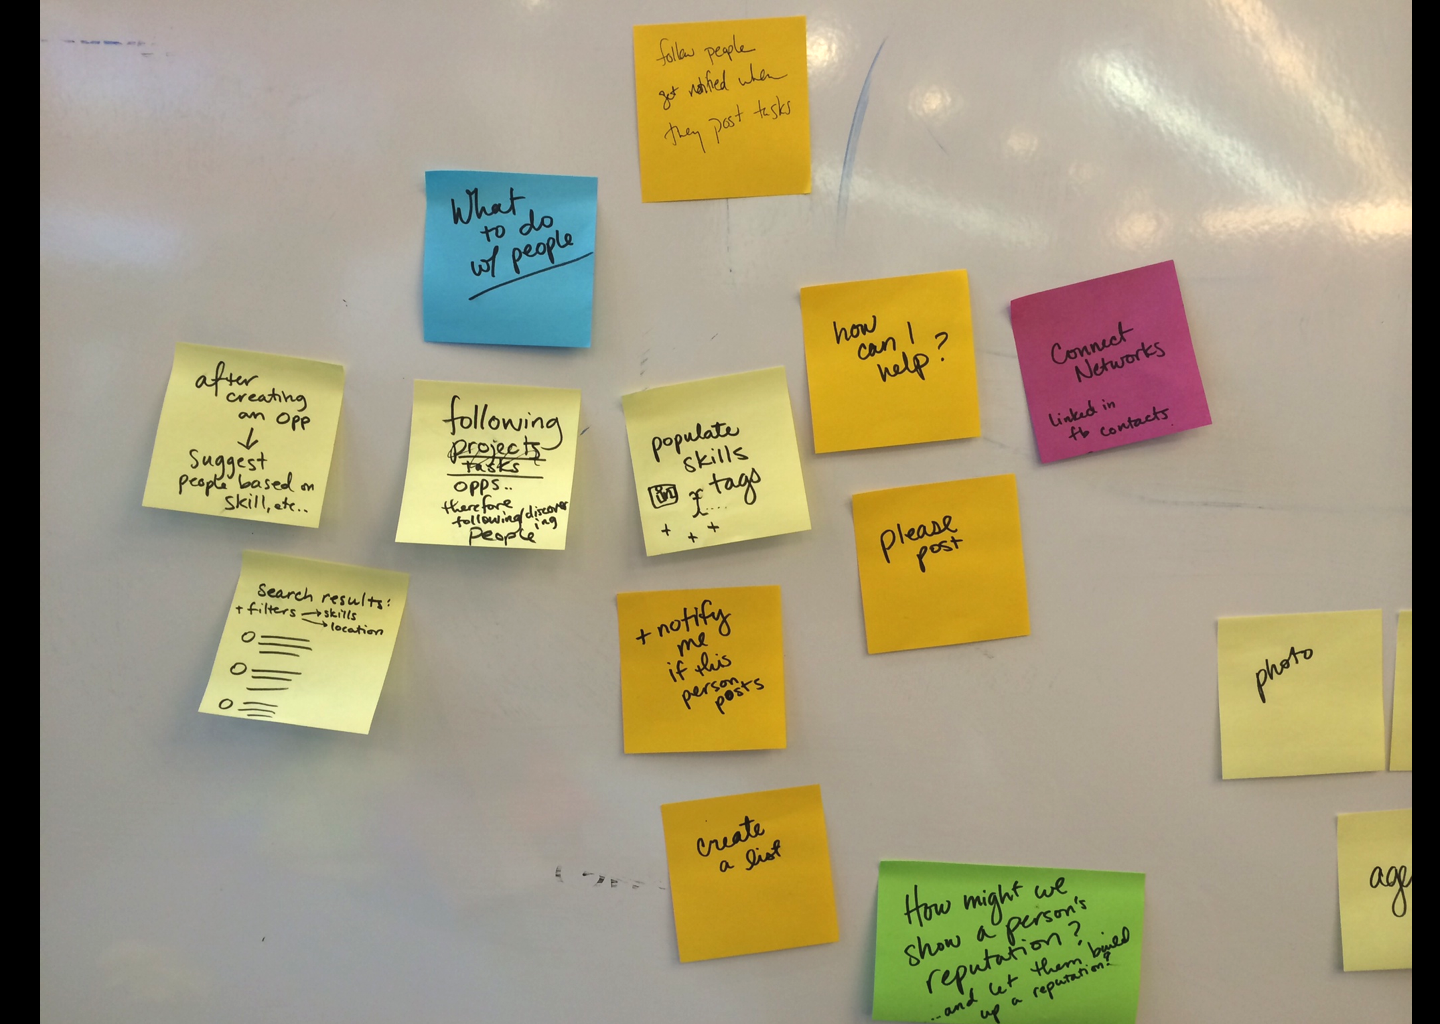 follow people
get notified when
they post tasks
What
to do
w/ people
how
can I
help?
Connect
Networks
linked in
fb contacts.
after
creating
an opp
↓
suggest
people based on
skill, etc..
following
projects
tasks
opps..
therefore
following/discovering
people
populate
skills
in
tags
+ + +
please
post
search results:
+ filters → skills
→ location
+ notify
me
if this
person
posts
photo
create
a list
How might we
show a person's
reputation?
...and let them build
up a reputation?
age